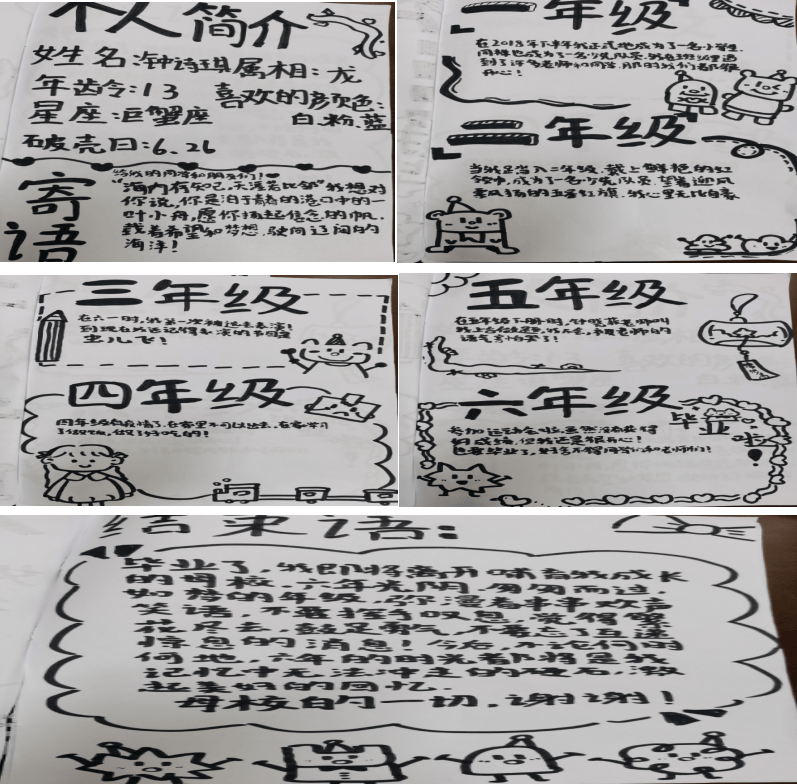 本人简介
姓名:钟诗琪属相:龙
年龄:13
喜欢的颜色:
星座:巨蟹座
白.粉.蓝
破壳日:6.26
寄语
给我的同学和朋友们!
"海内存知己,天涯若比邻"我想对
你说,你是泊于青春的港口中的一
叶小舟,愿你扬起信念的帆.
载着希望和梦想.驶向辽阔的
海洋!
一年级
在2018年下半年我正式地成为了一名小学生.
到了许多老师和同学.那时我们都很
开心!
二年级
当我是步入二年级.戴上鲜艳的红
领巾,成为了一名少先队员.望着迎风
飘扬的五星红旗.我心里无比自豪
三年级
在六一时,我第一次被选去表演!
到现在我还记得表演的节目是
虫儿飞!
四年级
四年级有疫情了.在家里不可以出去.在家学习
了做饭,做了好吃的!
五年级
在五年级下册时,
语气
六年级
毕业啦
参加运动会啦.虽然没有获得
好成绩,但我还是很开心!
也要毕业了,好舍不得同学们和老师们!
结束语:
毕业了,我即将离开哺育我成长
的母校,六年光阴.匆匆而过.
如梦的年级,你漫着串串欢声
笑语,不要挥手叹息,觉得繁
花尽去,鼓足勇气,不要忘了互递
惊息的消息!今后,不论何时
何地,六年的时光都将是我
记忆中无法冲走的礁石,激
起美好的回忆.
母校的一切,谢谢!